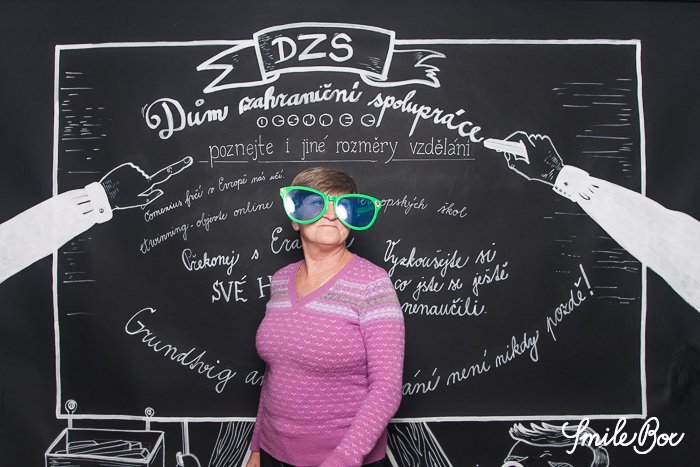 DZS
Dům zahraniční spolupráce
poznejte i jiné rozměry vzdělání
Comenius frčí v Evropě nás učí.
eTwinning - objevte online evropských škol
Překonej s Era
SVÉ H
Vyzkoušejte si
co jste se ještě
nenaučili.
Grundtvig a ání není nikdy pozdě!
Smile Box